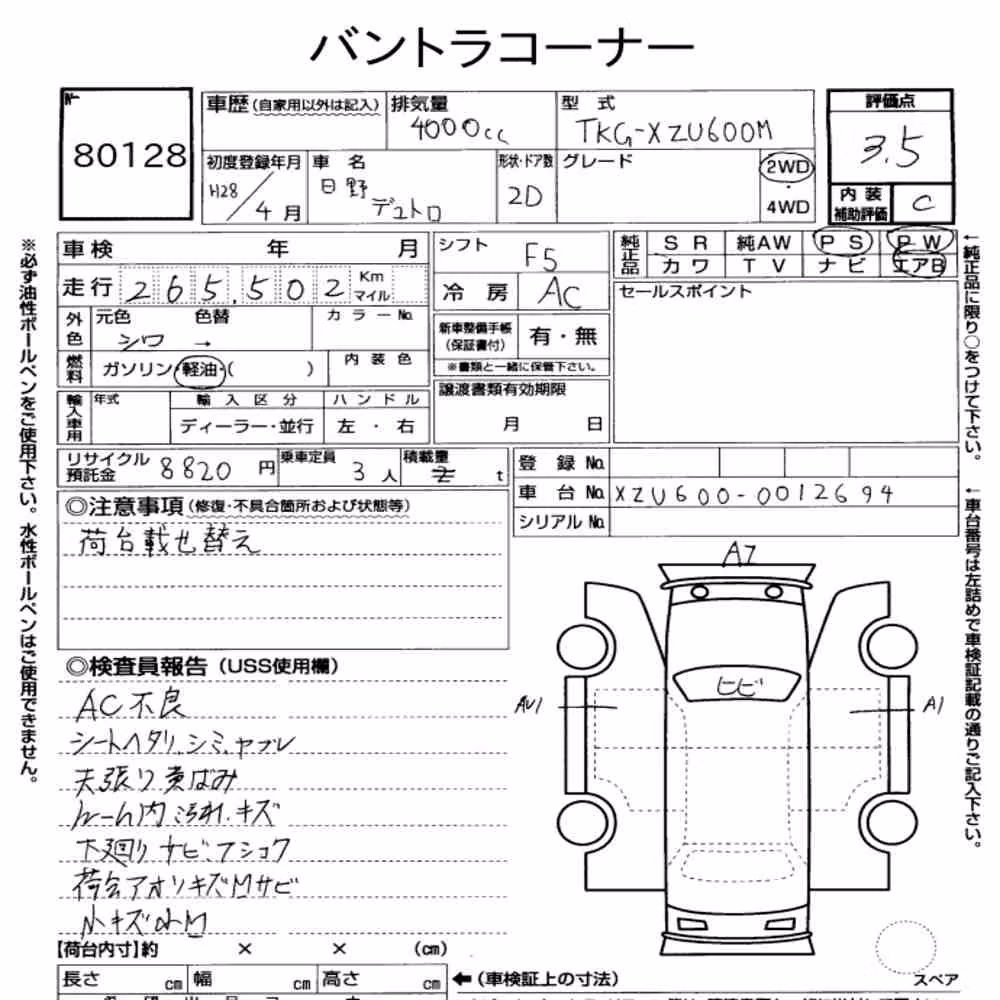 バントラコーナー
№ 80128
車歴 (自家用以外は記入)
排気量 4000cc
型式 TKG-XZU600M
評価点 3.5
内装補助評価 C
初度登録年月 H28/4月
車名 日野 デュトロ
形状・ドア数 2D
グレード
2WD・4WD
車検 年 月
シフト F5
純正品 SR 純AW PS PW
カワ TV ナビ エアB
走行 265,502 Km マイル
冷房 AC
セールスポイント
外色 元色 シロ → 色替 カラーNo.
新車整備手帳(保証書付) 有・無
※書類と一緒に保管下さい。
燃料 ガソリン・軽油・( ) 内装色
譲渡書類有効期限 月 日
輸入車用 年式 輸入区分 ハンドル
ディーラー・並行 左・右
リサイクル預託金 8820円
乗車定員 3人
積載量 t
登録No.
車台No. XZU600-0012694
シリアルNo.
◎注意事項(修復・不具合箇所および状態等)
荷台載せ替え
◎検査員報告(USS使用欄)
AC不良
シートヘタリ、シミ、ヤブレ
天張り黄ばみ
ルーム内汚れ、キズ
下廻りサビ、フショク
荷台アオリキズMサビ
小キズ小M
A1
ヒビ
AU1
A1
【荷台内寸】約 × × (cm)
長さ cm 幅 cm 高さ cm
←(車検証上の寸法)
スペア
※必ず油性ボールペンをご使用下さい。水性ボールペンはご使用できません。
←純正品に限り○をつけて下さい。
←車台番号は左詰めで車検証記載の通りご記入下さい。